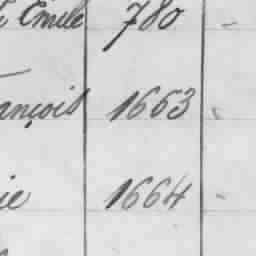 Emile 780 -
ançois 1663 -
ie 1664 -